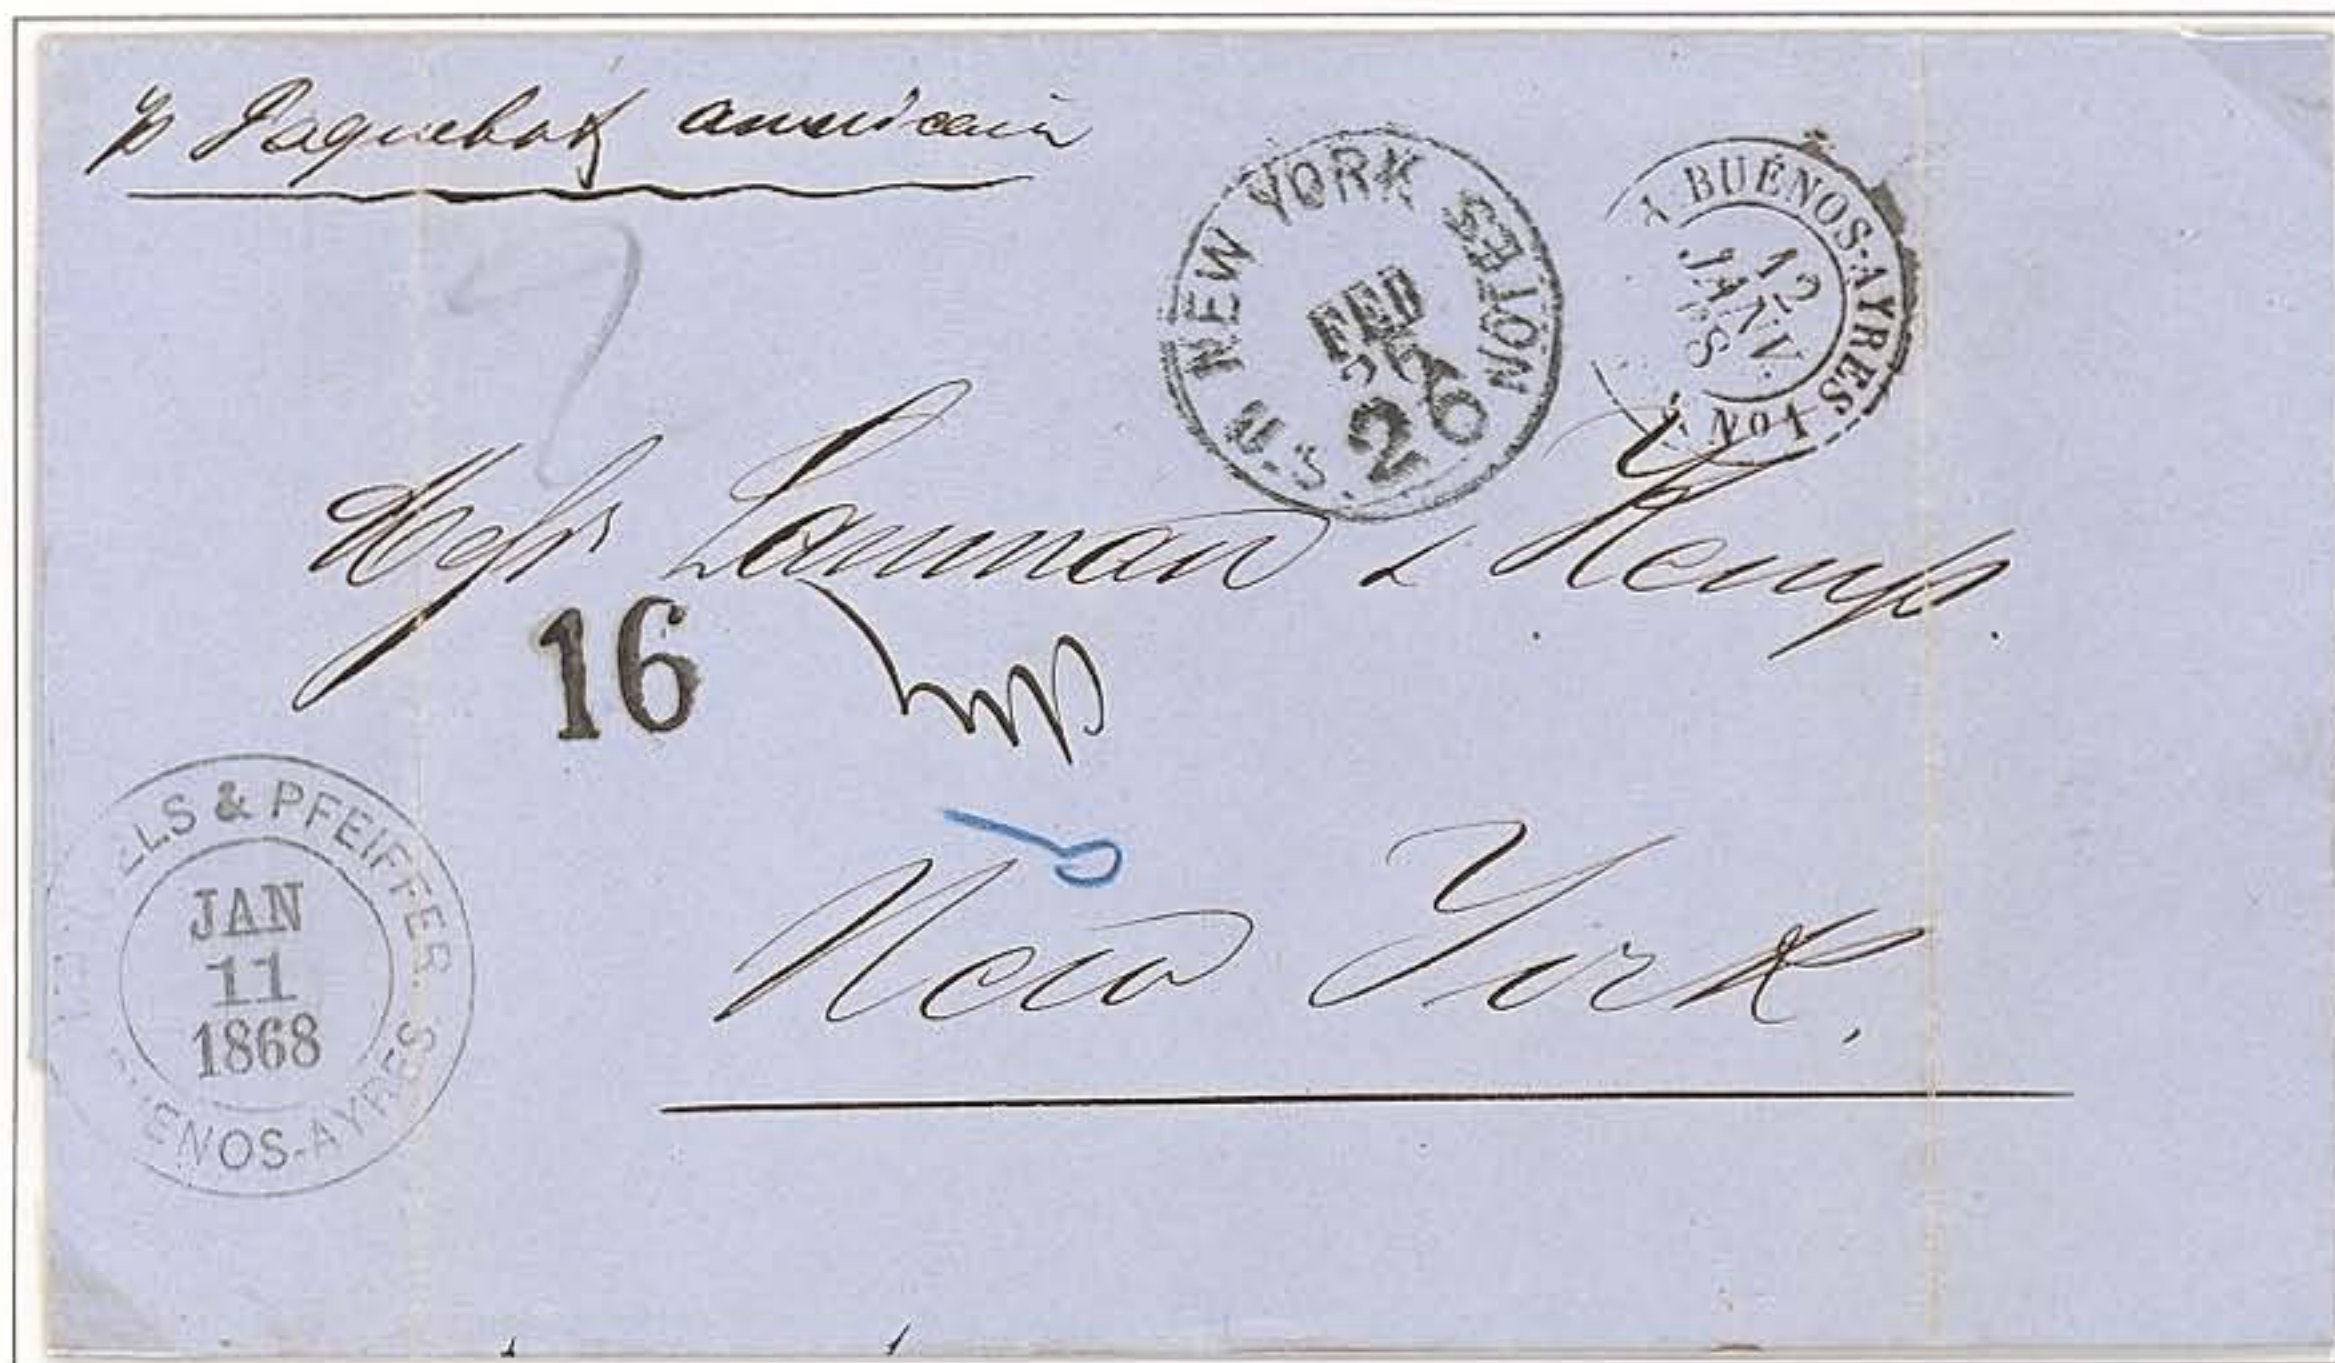 p Paquebot américain
NEW YORK
FEB
26
U.S. NOTES
A BUÉNOS-AYRES
12
JANV.
No 1
Messrs Lanman & Kemp.
16
ELS & PFEIFFER.
JAN
11
1868
ENOS-AYRES
New York.